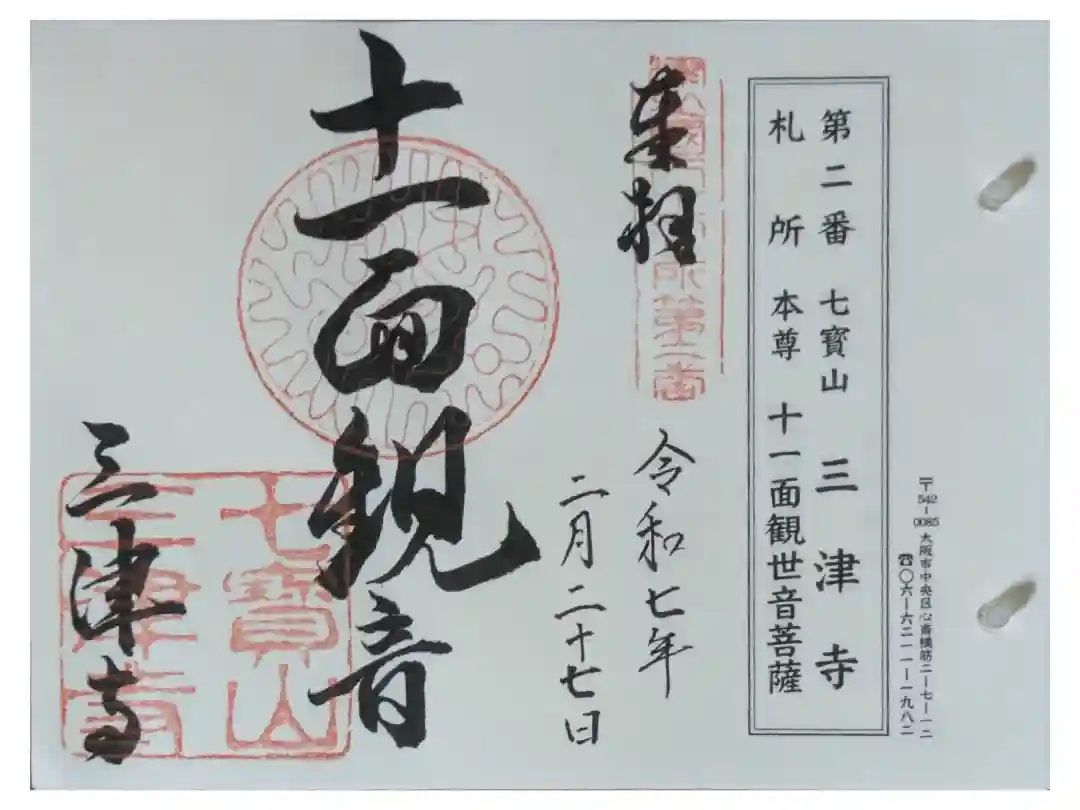 〒542-0085 大阪市中央区心斎橋筋二-七-一二
☎〇六-六二一一-一九八二
第二番 七寶山 三津寺
札所 本尊 十一面観世音菩薩
奉拝
所第二番
令和七年
二月二十七日
十一面観音
七寶山
三津寺
三津寺